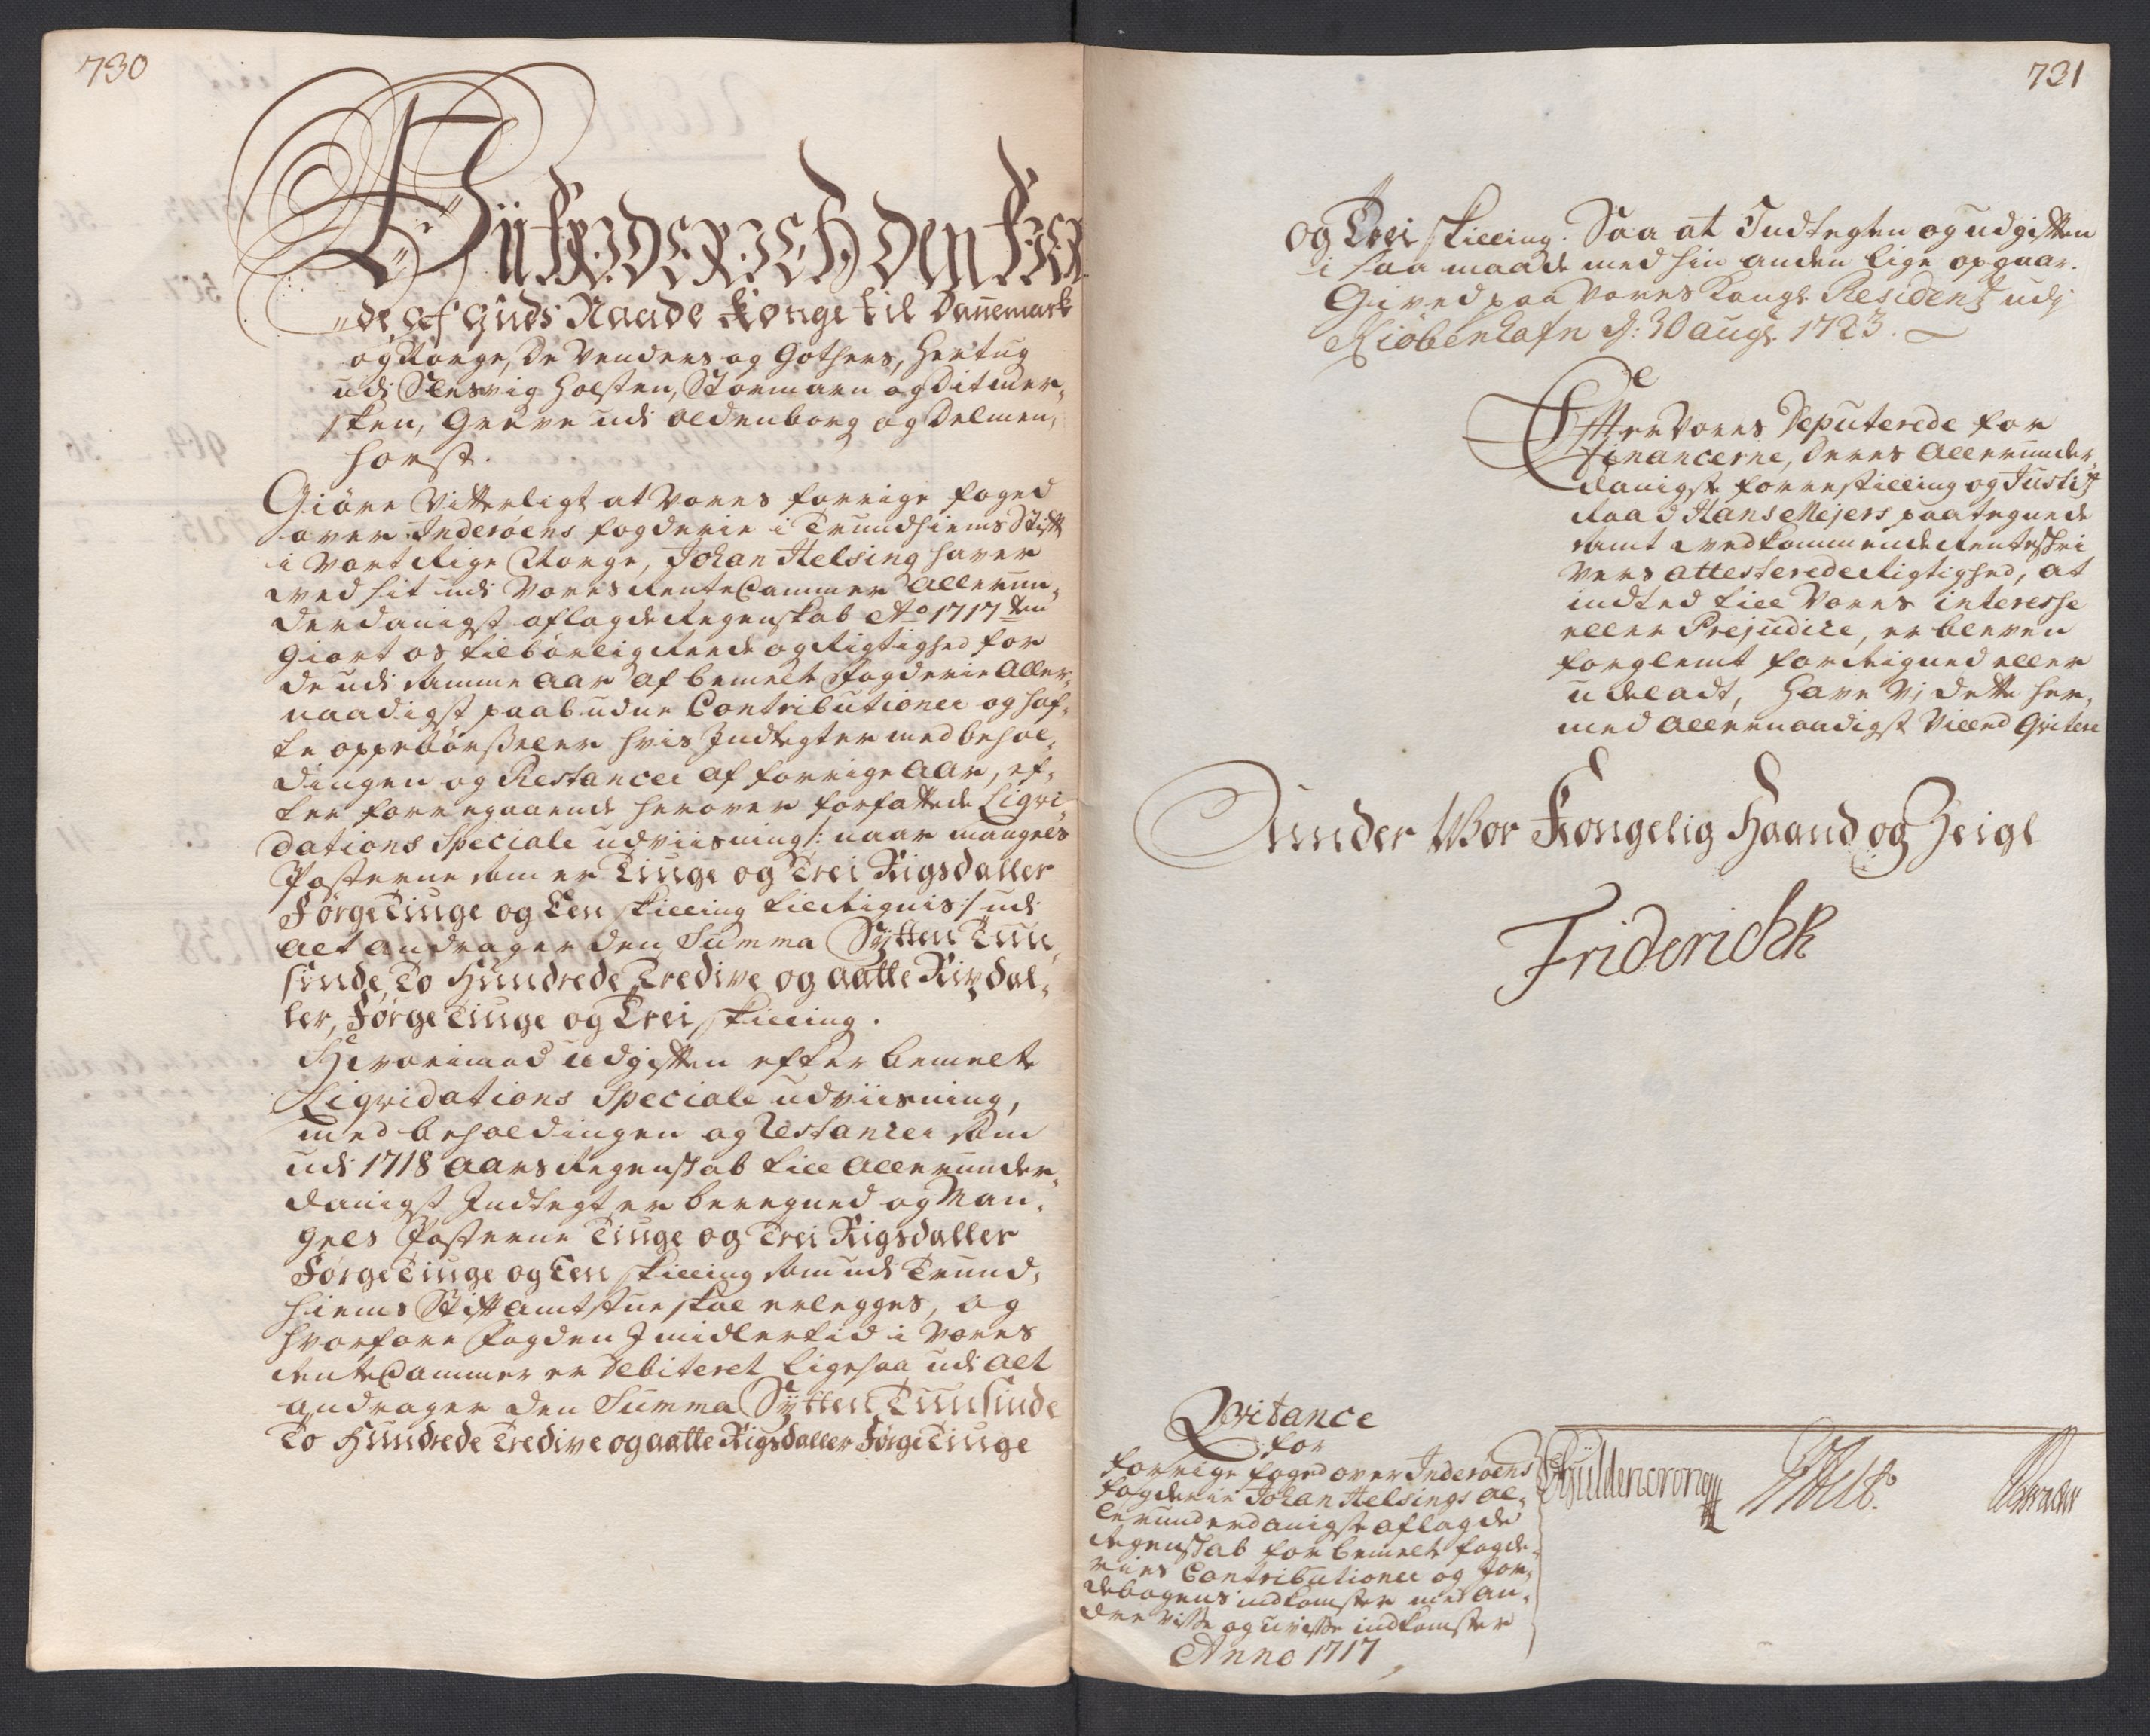 730
Vii FRIDERICH den Fier
"de, af Guds Naade Konge til Dannemark
og Norge, de Venders og Gothers, Hertug
udi Slesvig Holsten, Stormarn og Ditmer,
sken, Greve udi Oldenborg og Delmen,
horst.
Giöre Vitterligt at Vores forrige foged
over Inderöens fogderie i Trundhiems Stift
i Vort Rige Norge, Johan Helsing haver
ved sit udi Vores RenteCammer allerun,
derdanigst aflagde Regenskab Ao 1717 ten
Giort os tilbörlig Rede og Rigtighed for
de udi samme Aar af bemelte Fogderie Aller,
naadigst paabudne Contributioner og haf,
te oppebörseler hvis Indtegter med behol,
dingen og Restancer af forrige Aar, ef,
ter forregaaende herover forfattede Liqvi,
dations Speciale udviisning /: naar mangels
Posterne som er Tiuge og Trei Rigsdaller
Förgetiuge og Een skilling tillignis :/ udi
alt andrager den Summa Sÿtten Tuu,
sinde, To Hundrede Tredive og aatte Rixdal,
ler, Förgetiuge og Trei skilling.
Hvorimod udgiften efter bemelte
Liqvidations Speciale udviisning,
med beholdingen og Restancer som
udi 1718 Aars Regenskab till Allerunder,
danigst Indtegt er beregned og Man,
gels Posterne Tiuge og Trei Rigsdaller
Förgetiuge og Een skilling som udi Trund,
hiems Stiftamtstue skal erlegges, og
hvorfore Fogden Imidlertid i Vores
RenteCammer er Debiteret ligesaa udi alt
andrager den Summa Sÿtten Tuusinde
To Hundrede Tredive og aatte Rigsdaller Förgetiuge
731
og Trei skilling. Saa at Indtegten og udgiften
i saa maade med hin anden lige opgaar.
Gived paa Vores Kongl. Residentz udj
Kiöbenhafn d: 30 augs. 1723.
Efter Vores Deputerede for
Financerne, deres Allerunder,
danigst forrestilling og Justitz
Raad Hans Mejers paategnede
samt vedkommende Renteskri
vers attesterede Rigtighed, at
indted till Vores interesse
eller Prejudice, er bleven
forglemt fortegned eller
udeladt, Have Vj dette her,
med Allernaadigst Villed Qvitere
Under Vor Kongelig Haand og Zeigl
Friderich R
Qvitance
for
forrige foged over Inderöens
fogderie Johan Helsings al,
lerunderdanigst aflagde
Regenskab for bemelte fogde,
ries Contributioner og Jor,
debogens indkomster med an,
dre visse og uvisse indkomster
Anno 1717
Güldencrone